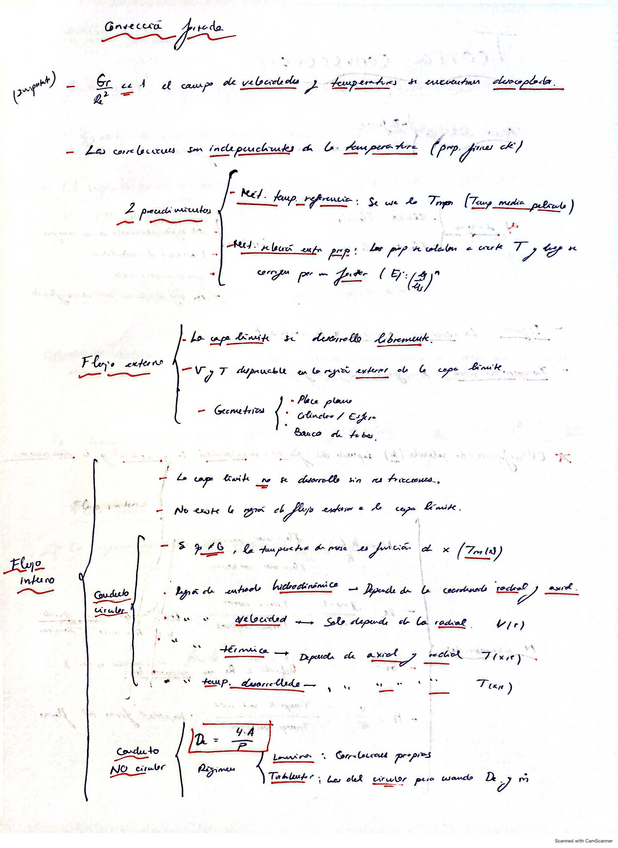 Convección forzada
(Import) - Gr/Re² << 1 el campo de velocidades y temperaturas se encuentran desacoplados.
- Las correlaciones son independientes de la temperatura (prop. físicas cte)
2 procedimientos
- Mét. temp. referencia: Se usa la (Temp media película)
- Mét. relación entre prop: Las prop se calculan a cierta T y luego se
corrigen por un factor (Ej: )ⁿ
Flujo externo
- La capa límite se desarrolla libremente.
- V y T despreciable en la región externa de la capa límite.
- Geometrías
• Placa plana
• Cilindro / Esfera
Banco de tubos.
Flujo interno
- La capa límite no se desarrolla sin restricciones.
- No existe la región de flujo externo a la capa límite.
Conducto circular
- Si , la temperatura de masa es función de x (Tm(x))
• Región de entrada hidrodinámica → Depende de la coordenada radial y axial.
• " " " velocidad → Solo depende de la radial. V(r)
" " térmica → Depende de axial y radial T(x,r)
• " " temp. desarrollada → " " " " T(x,r)
Conducto NO circular
De = 4·A/P
Régimen
Laminar: Correlaciones propias
Turbulento: Las del circular pero usando De y ṁ
Scanned with CamScanner